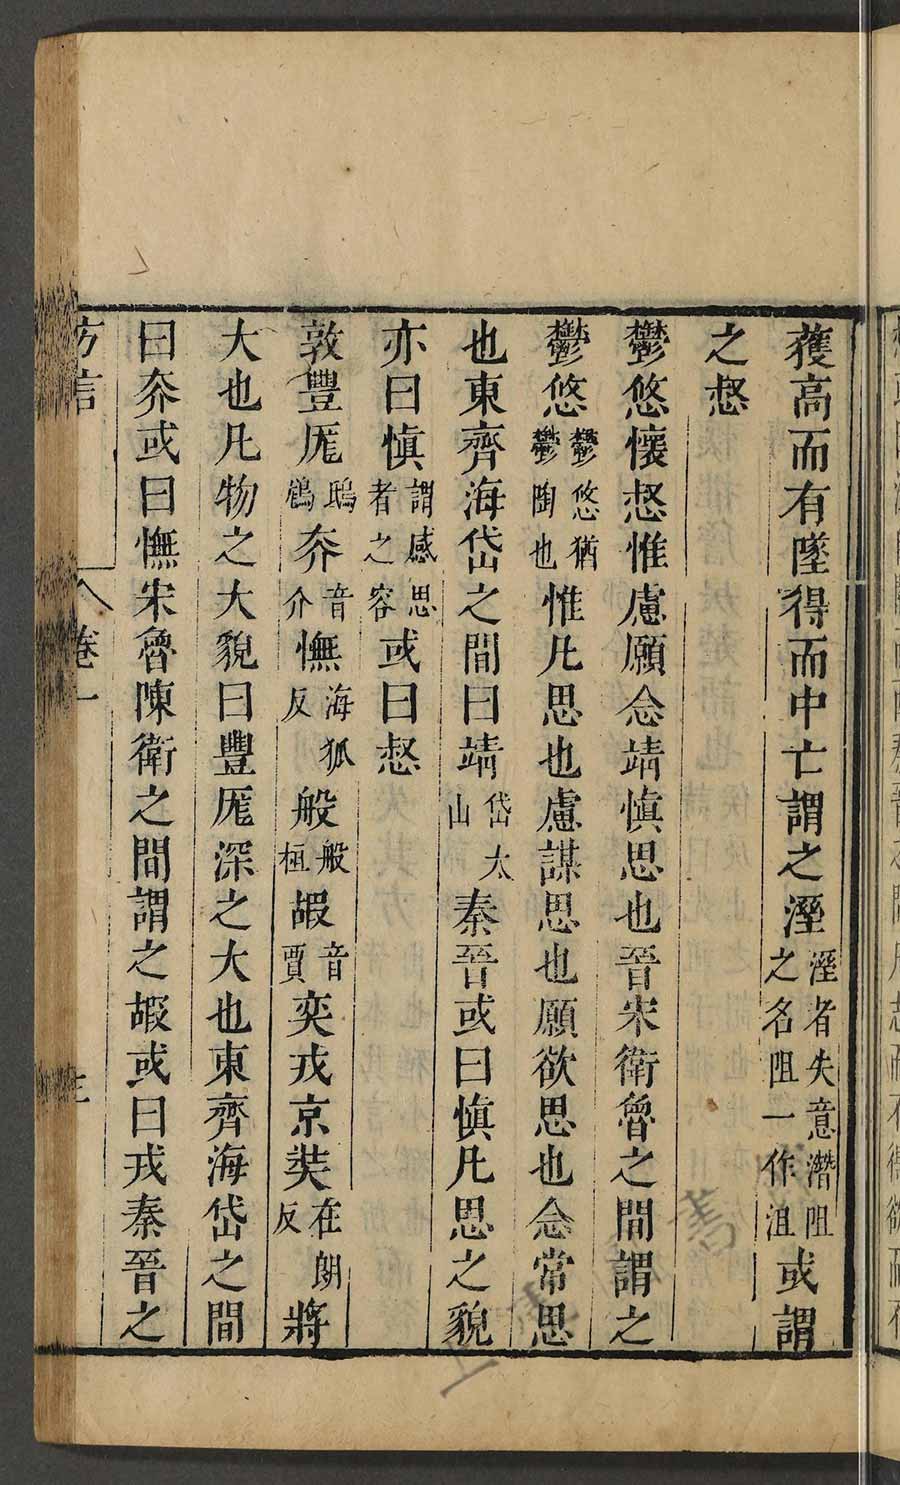 獲高而有墜得而中亡謂之溼溼者失意潛阻之名阻一作沮或謂
之惄
鬱悠懷惄惟慮願念靖慎思也晉宋衛魯之間謂之
鬱悠鬱悠猶鬱陶也惟凡思也慮謀思也願欲思也念常思
也東齊海岱之間曰靖岱太山秦晉或曰慎凡思之貌
亦曰慎謂感思者之容或曰惄
敦豐厖鴟鵂夰音介憮海狐反般般桓嘏音賈奕戎京奘在朗反將
大也凡物之大貌曰豐厖深之大也東齊海岱之間
曰夰或曰憮宋魯陳衛之間謂之嘏或曰戎秦晉之
方言 卷一